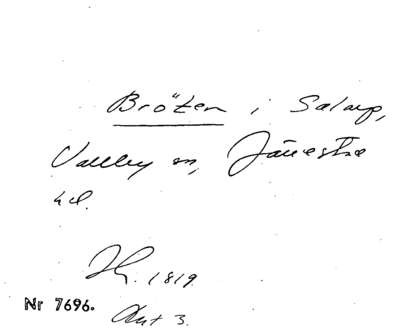 Bröten i Salarp,
Vallby sn, Järrestads
hd.
Jh. 1819
Nr 7696. Akt 3.